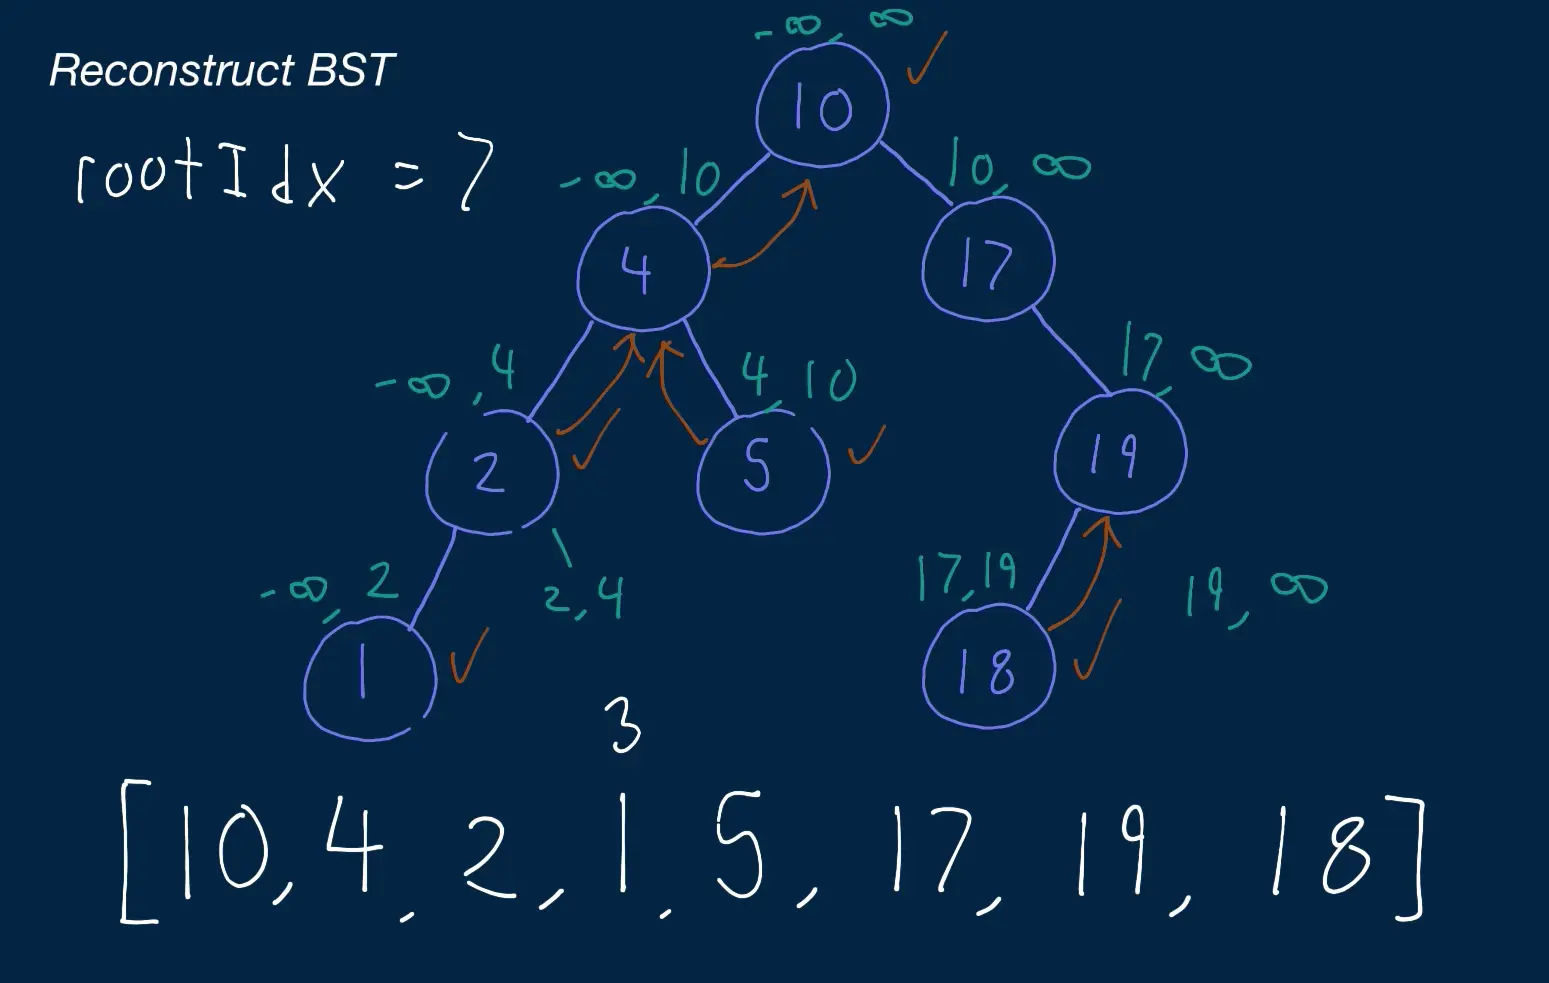 -∞, ∞
Reconstruct BST
10
rootIdx = 7
-∞, 10
10, ∞
4
17
-∞, 4
4, 10
17, ∞
2
5
19
-∞, 2
2, 4
17, 19
19, ∞
1
18
3
[10, 4, 2, 1, 5, 17, 19, 18]